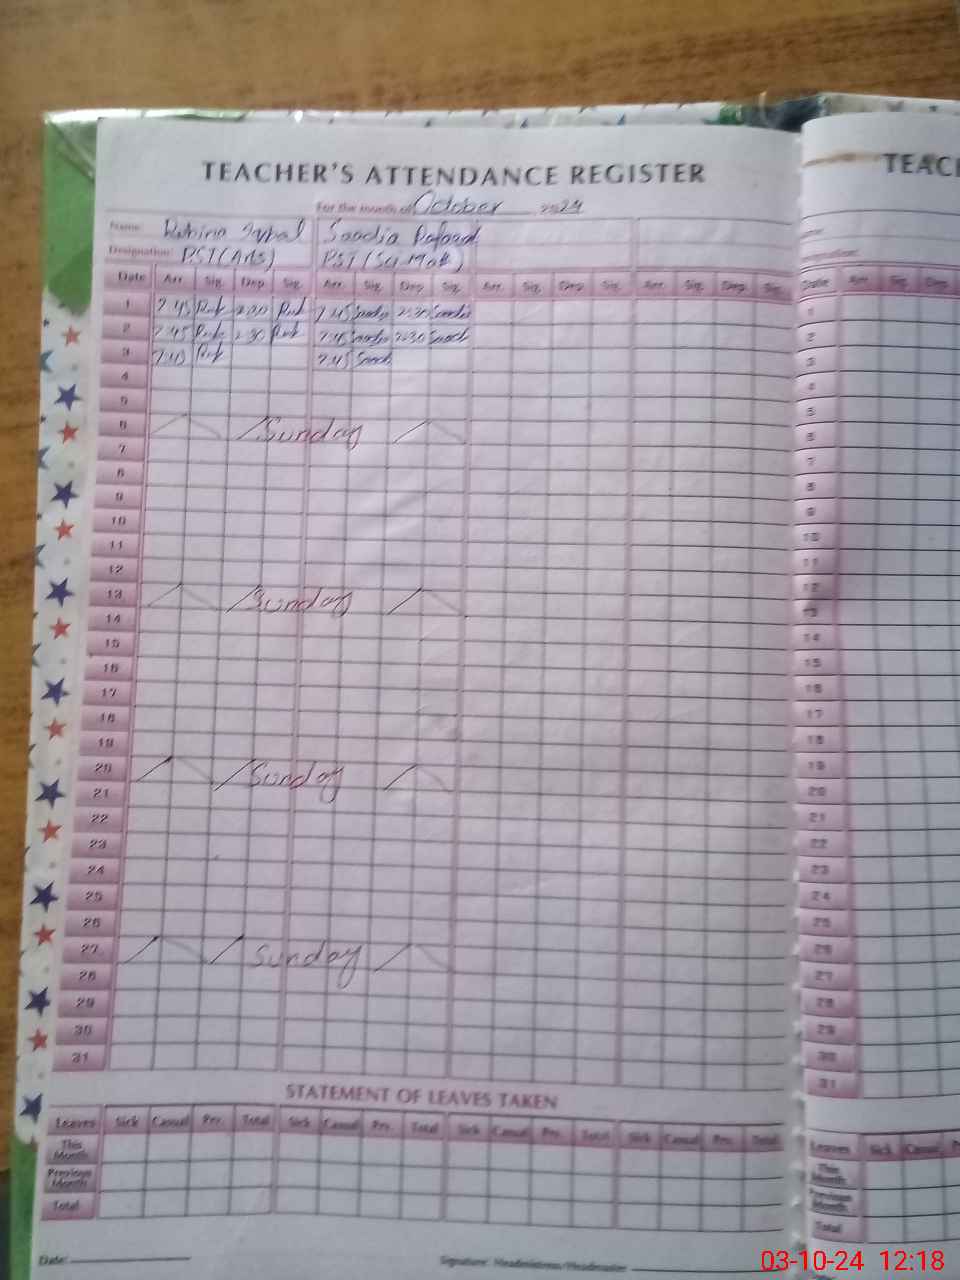 TEACHER'S ATTENDANCE REGISTER
For the month of October 2024
Name: Rubina Iqbal Saadia
Designation: PST (Arts) PST (Sci Math)
Date Arr. Sig. Dep Sig. Arr. Sig. Dep Sig. Arr. Sig. Dep Sig. Arr. Sig. Dep Sig.
1 7:45 Rub Rub 7:45 Saadia 2:30 Saadia
2 7:45 Rub 2:30 Rub 7:45 Saadia 2:30 Saadia
3 7:45 Rub 7:45 Saadia
4
5
6 Sunday
7
8
9
10
11
12
13 Sunday
14
15
16
17
18
19
20 Sunday
21
22
23
24
25
26
27 Sunday
28
29
30
31
STATEMENT OF LEAVES TAKEN
Leaves Sick Casual Prv. Total Sick Casual Prv. Total Sick Casual Prv. Total Sick Casual Prv. Total
This Month
Previous Month
Total
Date: Signature: Headmistress/Headmaster
TEAC
Date Arr. Sig. Dep
1
2
3
4
5
6
7
8
9
10
11
12
13
14
15
16
17
18
19
20
21
22
23
24
25
26
27
28
29
30
31
Leaves Sick Casual P
This Month
Previous Month
Total
03-10-24 12:18